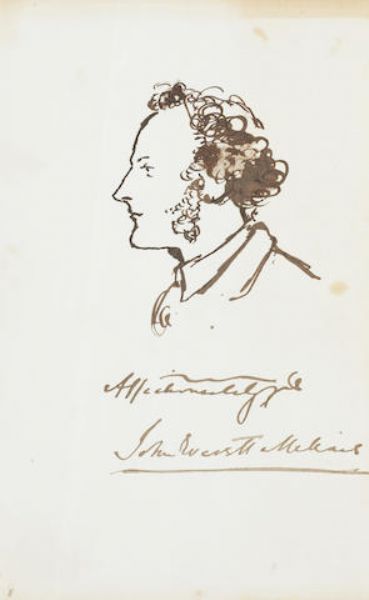 Affectionately yrs
John Everett Millais